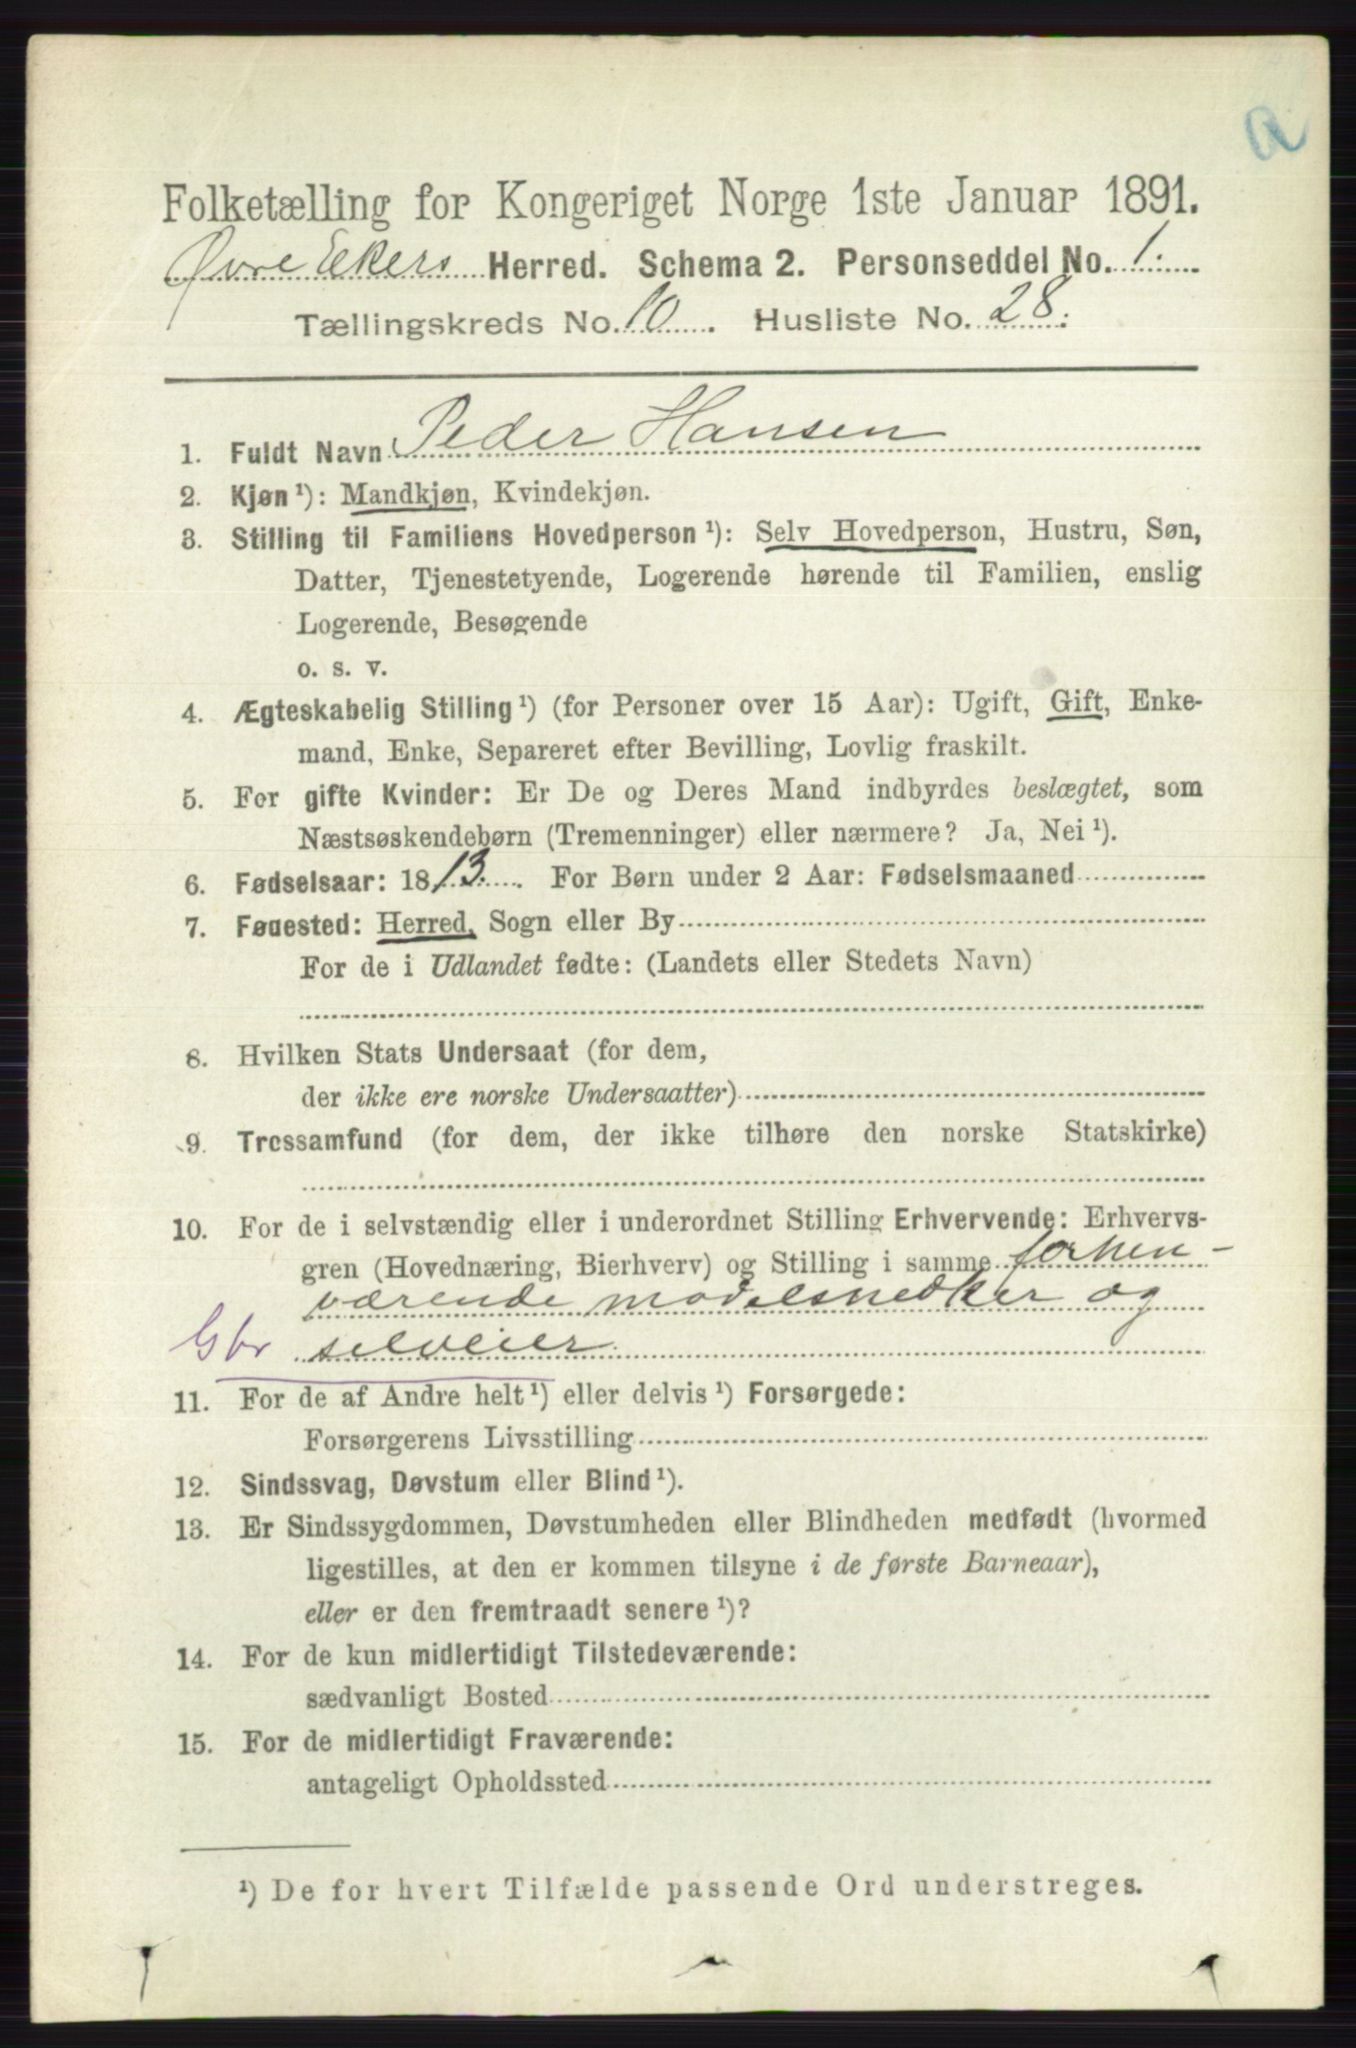 a
Folketælling for Kongeriget Norge 1ste Januar 1891.
Øvre Ekers Herred. Schema 2. Personseddel No. 1.
Tællingskreds No. 10. Husliste No. 28.
1. Fuldt Navn Peder Hansen
2. Kjøn ¹): Mandkjøn, Kvindekjøn.
3. Stilling til Familiens Hovedperson ¹): Selv Hovedperson, Hustru, Søn,
Datter, Tjenestetyende, Logerende hørende til Familien, enslig
Logerende, Besøgende
o. s. v.
4. Ægteskabelig Stilling ¹) (for Personer over 15 Aar): Ugift, Gift, Enke-
mand, Enke, Separeret efter Bevilling, Lovlig fraskilt.
5. For gifte Kvinder: Er De og Deres Mand indbyrdes beslægtet, som
Næstsøskendebørn (Tremenninger) eller nærmere? Ja, Nei ¹).
6. Fødselsaar: 1813. For Børn under 2 Aar: Fødselsmaaned
7. Fødested: Herred, Sogn eller By
For de i Udlandet fødte: (Landets eller Stedets Navn)
8. Hvilken Stats Undersaat (for dem,
der ikke ere norske Undersaatter)
9. Trossamfund (for dem, der ikke tilhøre den norske Statskirke)
10. For de i selvstændig eller i underordnet Stilling Erhvervende: Erhvervs-
gren (Hovednæring, Bierhverv) og Stilling i samme forhen-
værende modelsnedker og
Gbr selveier
11. For de af Andre helt ¹) eller delvis ¹) Forsørgede:
Forsørgerens Livsstilling
12. Sindssvag, Døvstum eller Blind ¹).
13. Er Sindssygdommen, Døvstumheden eller Blindheden medfødt (hvormed
ligestilles, at den er kommen tilsyne i de første Barneaar),
eller er den fremtraadt senere ¹)?
14. For de kun midlertidigt Tilstedeværende:
sædvanligt Bosted
15. For de midlertidigt Fraværende:
antageligt Opholdssted
¹) De for hvert Tilfælde passende Ord understreges.